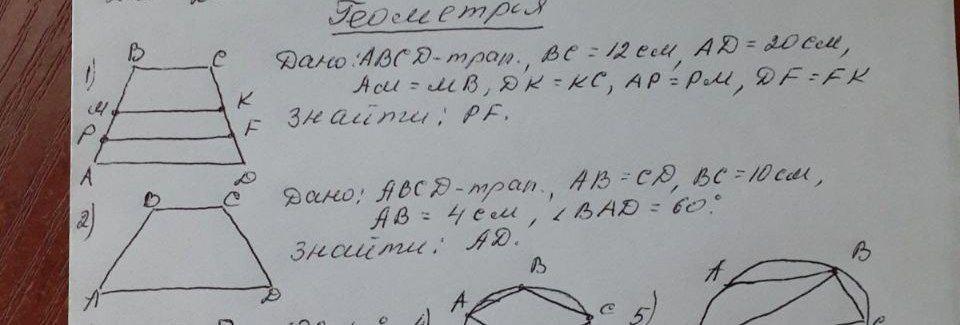 Геометрия
1)
B C
M K
P F
A D
Дано: ABCD-трап., BC = 12 см, AD = 20 см,
AM = MB, DK = KC, AP = PM, DF = FK
Знайти: PF.
2)
B C
A D
Дано: ABCD-трап., AB = CD, BC = 10 см,
AB = 4 см, ∠BAD = 60°
Знайти: AD.
4)
A B C
5)
A B